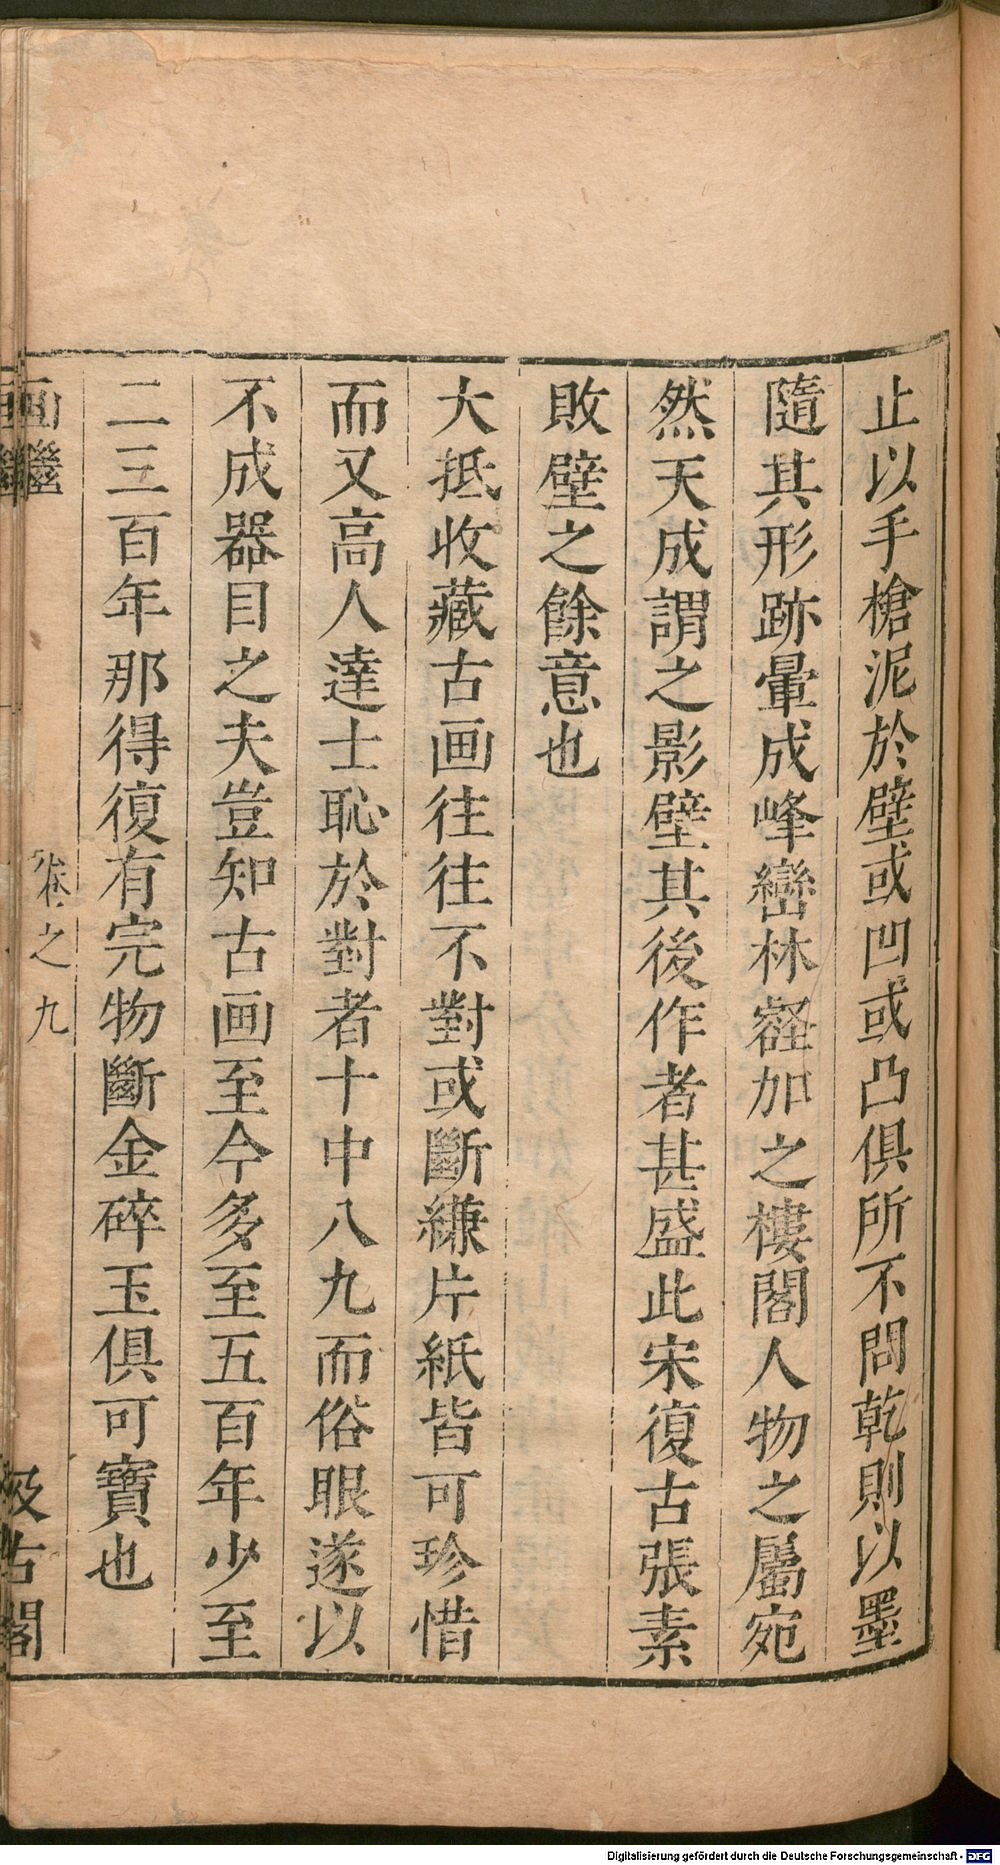 止以手槍泥於壁或凹或凸俱所不問乾則以墨
隨其形跡暈成峰巒林壑加之樓閣人物之屬宛
然天成謂之影壁其後作者甚盛此宋復古張素
敗壁之餘意也
大抵收藏古画往往不對或斷縑片紙皆可珍惜
而又高人達士恥於對者十中八九而俗眼遂以
不成器目之夫豈知古画至今多至五百年少至
二三百年那得復有完物斷金碎玉俱可寶也
画繼
卷之九
汲古閣
Digitalisierung gefördert durch die Deutsche Forschungsgemeinschaft - DFG